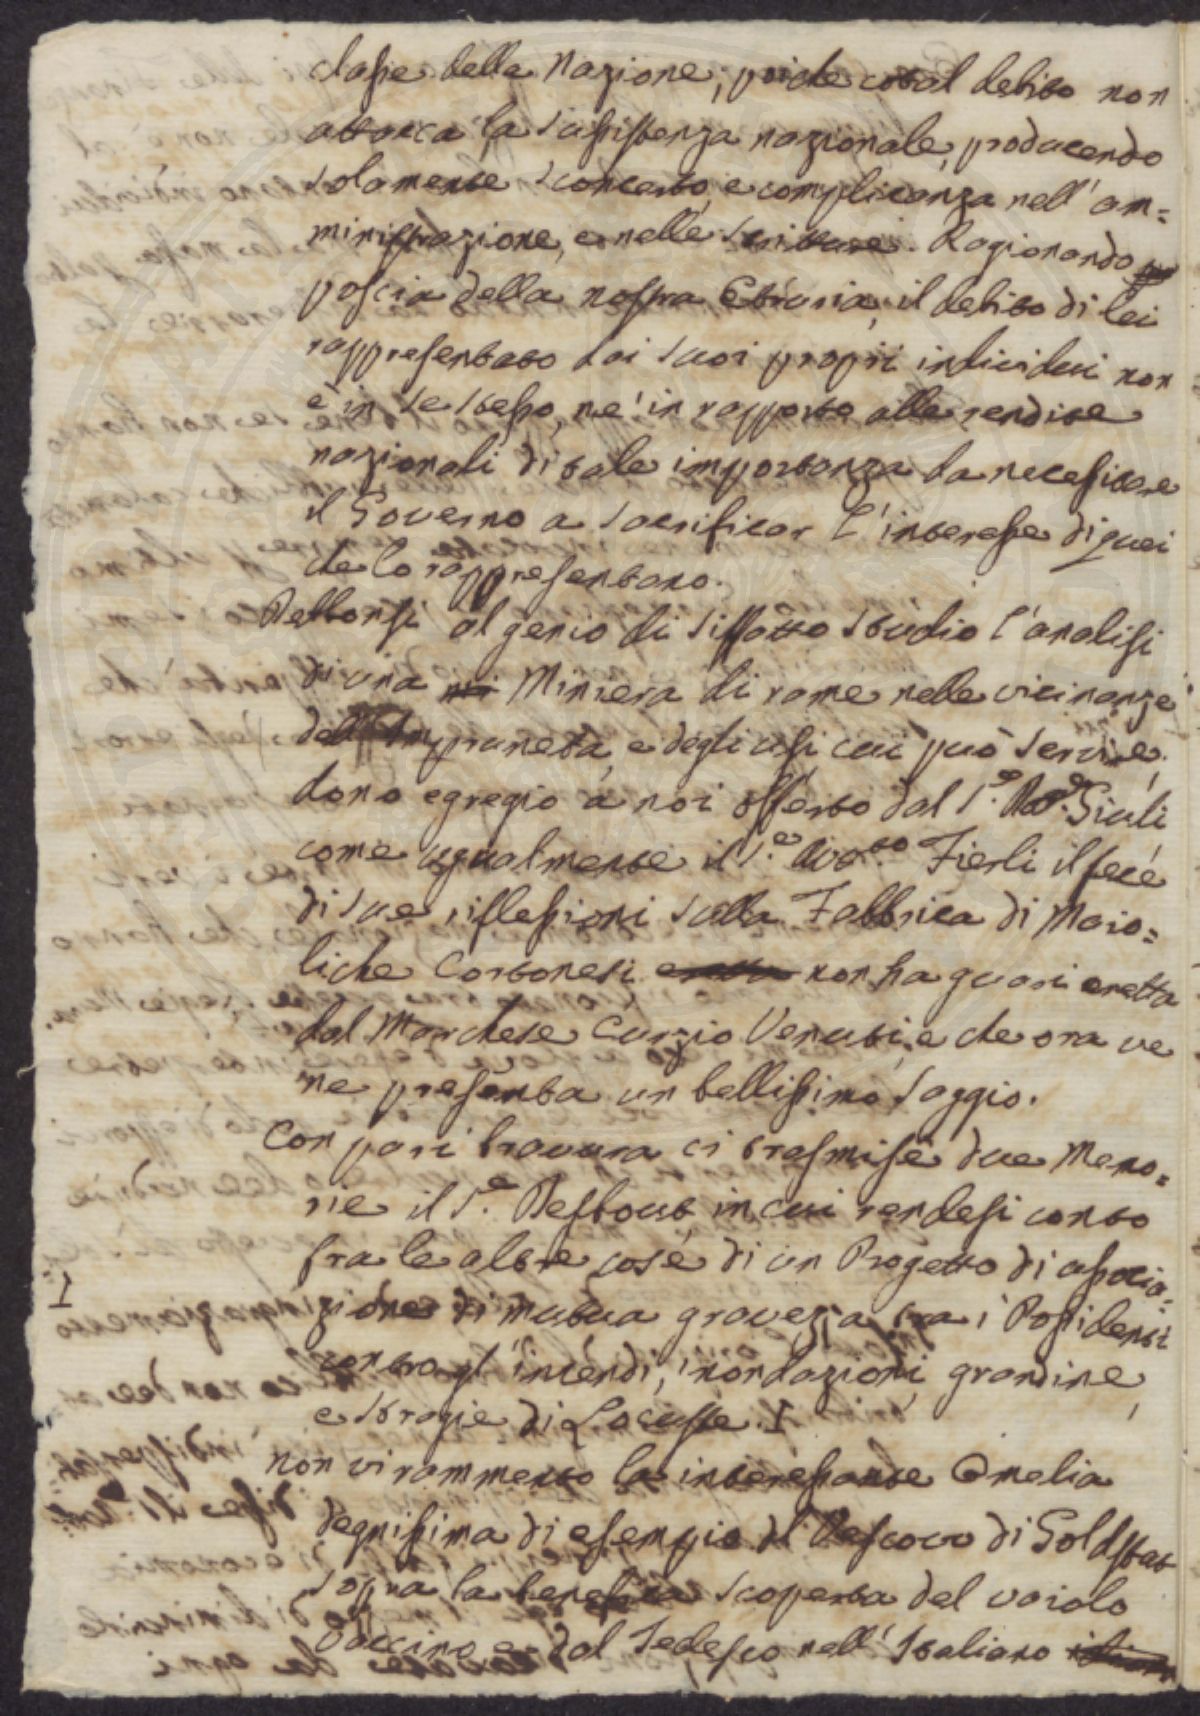 classe della Nazione, poiche cotal debito non
attacca la sussistenza nazionale, producendo
solamente sconcerto, e complicanza nell' am=
ministrazione, e nelle scritture. Ragionando
poscia della nostra Etruria, il debito di lei
rappresentato dai suoi propri individui non
è in se stesso, ne' in rapporto alle rendite
nazionali di tale importanza da necessitare
il Governo a sacrificar l' interesse di quei
che lo rappresentano.
al genio di siffatto studio l' analisi
di una Miniera di rame nelle vicinanze
dell' Impruneta, e degli usi cui può servire,
dono egregio a noi offerto dal S.e Giuli
come ugualmente il S.e Avv.to Fierli il fece
di sue riflessioni sulla Fabbrica di Maio=
liche Cortonesi non ha guari eretta
dal Marchese Curzio Venuti, e che ora ve
ne presenta un bellissimo saggio.
Con pari bravura ci trasmise due Memo=
rie il S.e in cui rendesi conto
fra le altre cose di un Progetto di associa=
zione di mutua gravezza tra i Possidenti
contro gl' incendi, inondazioni, grandine,
e stragie di Locuste. I
non vi rammento la interessante Omelia
degnissima di esempio del Vescovo di Goldstat
sopra la benefica scoperta del vaiolo
Vaccino e dal Tedesco nell' Italiano
I